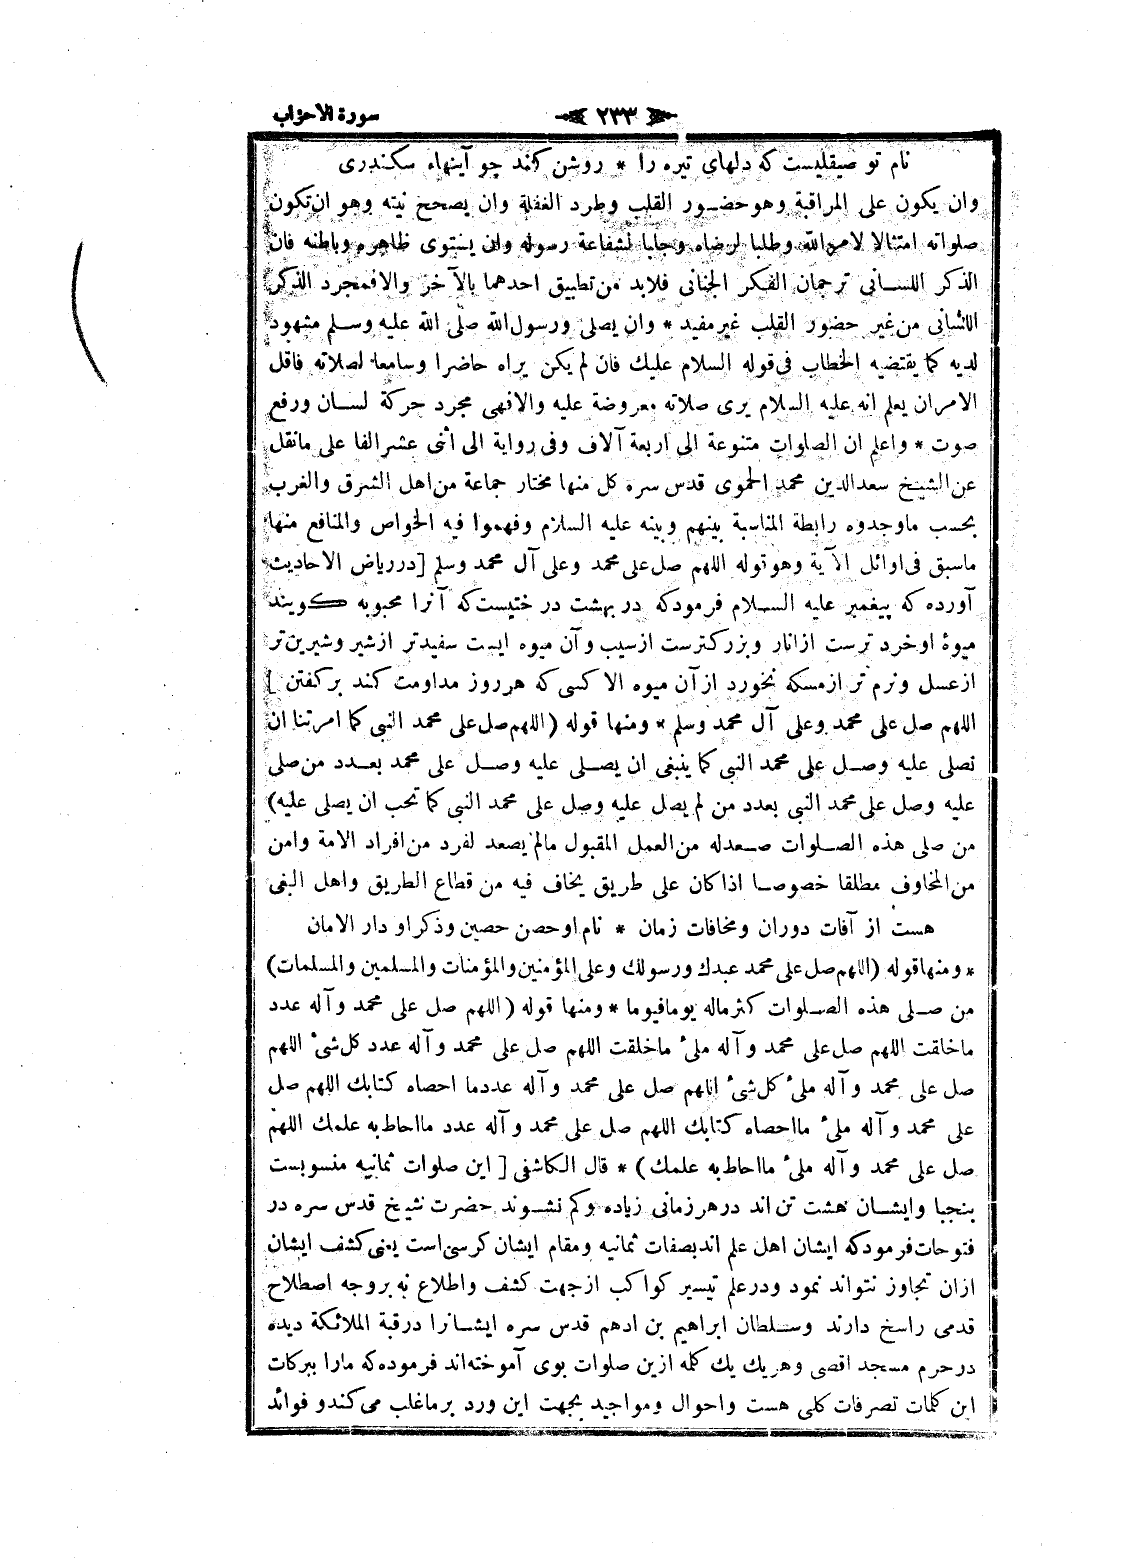 سورة الاحزاب
٢٣٣
نام تو صيقليست كه دلهاى تيره را * روشن كند چو آينهاء سكندرى
وان يكون على المراقبة وهو حضور القلب وطرد الغفلة وان يصحح نيته وهو ان تكون
صلواته امتثالا لامر الله وطلبا لرضاه وجلبا لشفاعة رسوله وان يستوى ظاهره وباطنه فان
الذكر اللسانى ترجمان الفكر الجنانى فلابد من تطبيق احدهما بالآخر والافمجرد الذكر
اللسانى من غير حضور القلب غير مفيد * وان يصلى ورسول الله صلى الله عليه وسلم مشهود
لديه كما يقتضيه الخطاب فى قوله السلام عليك فان لم يكن يراه حاضرا وسامعا لصلاته فاقل
الامر ان يعلم انه عليه السلام يرى صلاته معروضة عليه والافهى مجرد حركة لسان ورفع
صوت * واعلم ان الصلوات متنوعة الى اربعة آلاف وفى رواية الى اثنى عشر الفا على مانقل
عن الشيخ سعد الدين محمد الحموى قدس سره كل منها مختار جماعة من اهل الشرق والغرب
بحسب ماوجدوه رابطة المناسبة بينهم وبينه عليه السلام وفهموا فيه الخواص والمنافع منها
ماسبق فى اوائل الآية وهو قوله اللهم صل على محمد وعلى آل محمد وسلم [در رياض الاحاديث
آورده كه پيغمبر عليه السلام فرمود كه در بهشت درختيست كه آنرا محبوبه كويند
ميوۀ او خرد ترست از انار و بزركترست از سيب وآن ميوه ايست سفيدتر از شير وشيرين تر
از عسل ونرم تر از مسكه نخورد از آن ميوه الا كسى كه هر روز مداومت كند بر كفتن]
اللهم صل على محمد وعلى آل محمد وسلم * ومنها قوله (اللهم صل على محمد النبى كما امرتنا ان
نصلى عليه وصل على محمد النبى كما ينبغى ان يصلى عليه وصل على محمد بعدد من صلى
عليه وصل على محمد النبى بعدد من لم يصل عليه وصل على محمد النبى كما تحب ان يصلى عليه)
من صلى هذه الصلوات صعد له من العمل المقبول مالم يصعد لفرد من افراد الامة وامن
من المخاوف مطلقا خصوصا اذا كان على طريق يخاف فيه من قطاع الطريق واهل البغى
هست از آفات دوران ومخافات زمان * نام او حصن حصين وذكر او دار الامان
* ومنها قوله (اللهم صل على محمد عبدك ورسولك وعلى المؤمنين والمؤمنات والمسلمين والمسلمات)
من صلى هذه الصلوات كثر ماله يوما فيوما * ومنها قوله (اللهم صل على محمد وآله عدد
ماخلقت اللهم صل على محمد وآله ملئ ماخلقت اللهم صل على محمد وآله عدد كل شئ اللهم
صل على محمد وآله ملئ كل شئ اللهم صل على محمد وآله عدد ما احصاه كتابك اللهم صل
على محمد وآله ملئ ما احصاه كتابك اللهم صل على محمد وآله عدد ما احاط به علمك اللهم
صل على محمد وآله ملئ ما احاط به علمك) * قال الكاشفى [اين صلوات ثمانيه منسوبست
بنجبا وايشان هشت تن اند در هر زمانى زياده وكم نشوند حضرت شيخ قدس سره در
فتوحات فرمود كه ايشان اهل علم اند بصفات ثمانيه ومقام ايشان كرسى است يعنى كشف ايشان
ازان تجاوز نتواند نمود ودر علم تيسير كواكب از جهت كشف واطلاع نه بر وجه اصطلاح
قدمى راسخ دارند وسلطان ابراهيم بن ادهم قدس سره ايشانرا در قبة الملائكة ديده
در حرم مسجد اقصى وهر يك يك كلمه ازين صلوات بوى آموخته اند فرموده كه مارا ببركات
اين كلمات تصرفات كلى هست واحوال ومواجيد بجهت اين ورد بر ما غلب مى كند و فوائد